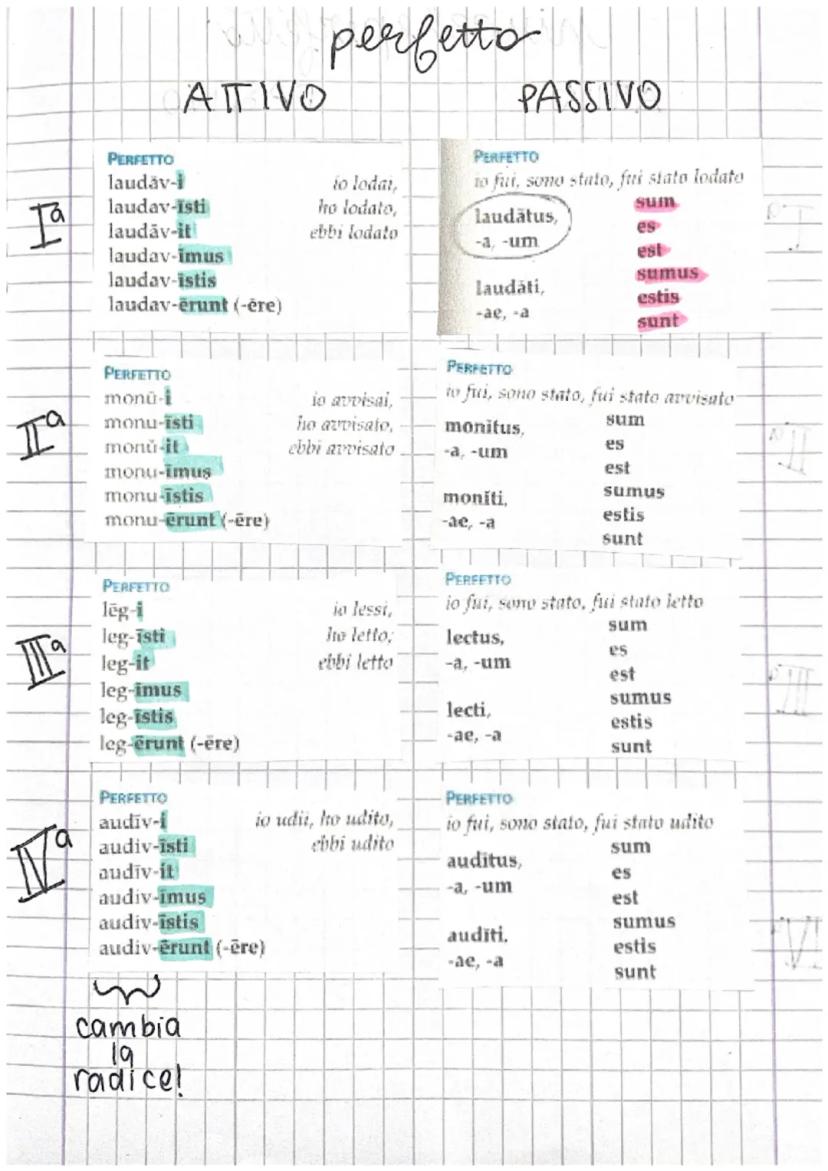 perfetto
ATTIVO
PASSIVO
Iª
PERFETTO
laudāv-i
laudav-ĭsti
laudāv-it
laudav-ĭmus
laudav-ĭstis
laudav-ērunt (-ēre)
io lodai,
ho lodato,
ebbi lodato
PERFETTO
io fui, sono stato, fui stato lodato
laudātus,
-a, -um
laudāti,
-ae, -a
sum
es
est
sumus
estis
sunt
IIª
PERFETTO
monŭ-i
monu-ĭsti
monŭ-it
monu-ĭmus
monu-ĭstis
monu-ērunt (-ēre)
io avvisai,
ho avvisato,
ebbi avvisato
PERFETTO
io fui, sono stato, fui stato avvisato
monĭtus,
-a, -um
monĭti,
-ae, -a
sum
es
est
sumus
estis
sunt
IIIª
PERFETTO
lēg-i
leg-ĭsti
leg-it
leg-ĭmus
leg-ĭstis
leg-ērunt (-ēre)
io lessi,
ho letto,
ebbi letto
PERFETTO
io fui, sono stato, fui stato letto
lectus,
-a, -um
lecti,
-ae, -a
sum
es
est
sumus
estis
sunt
IVª
PERFETTO
audīv-i
audiv-ĭsti
audīv-it
audiv-ĭmus
audiv-ĭstis
audiv-ērunt (-ēre)
io udii, ho udito,
ebbi udito
PERFETTO
io fui, sono stato, fui stato udito
audītus,
-a, -um
audīti,
-ae, -a
sum
es
est
sumus
estis
sunt
cambia
la
radice!